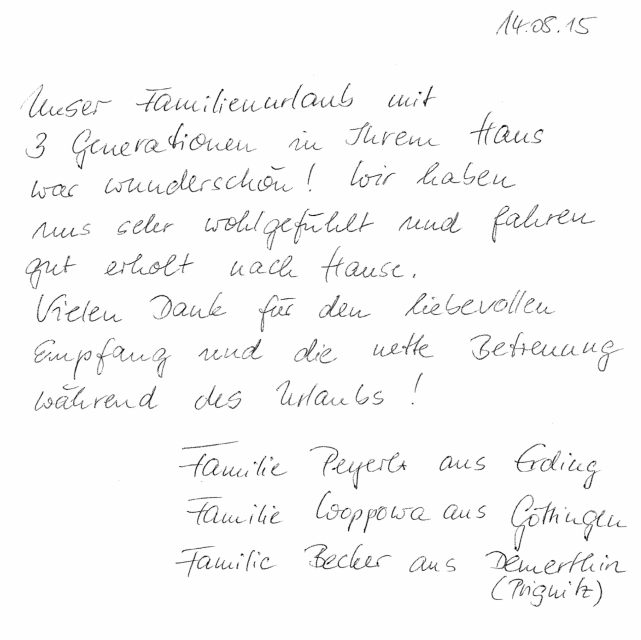 14.08.15
Unser Familienurlaub mit
3 Generationen in Ihrem Haus
war wunderschön! Wir haben
uns sehr wohlgefühlt und fahren
gut erholt nach Hause.
Vielen Dank für den liebevollen
Empfang und die nette Betreuung
während des Urlaubs!
Familie aus Erding
Familie Looppowa aus Göttingen
Familie Becker aus Demerthin
(Prignitz)